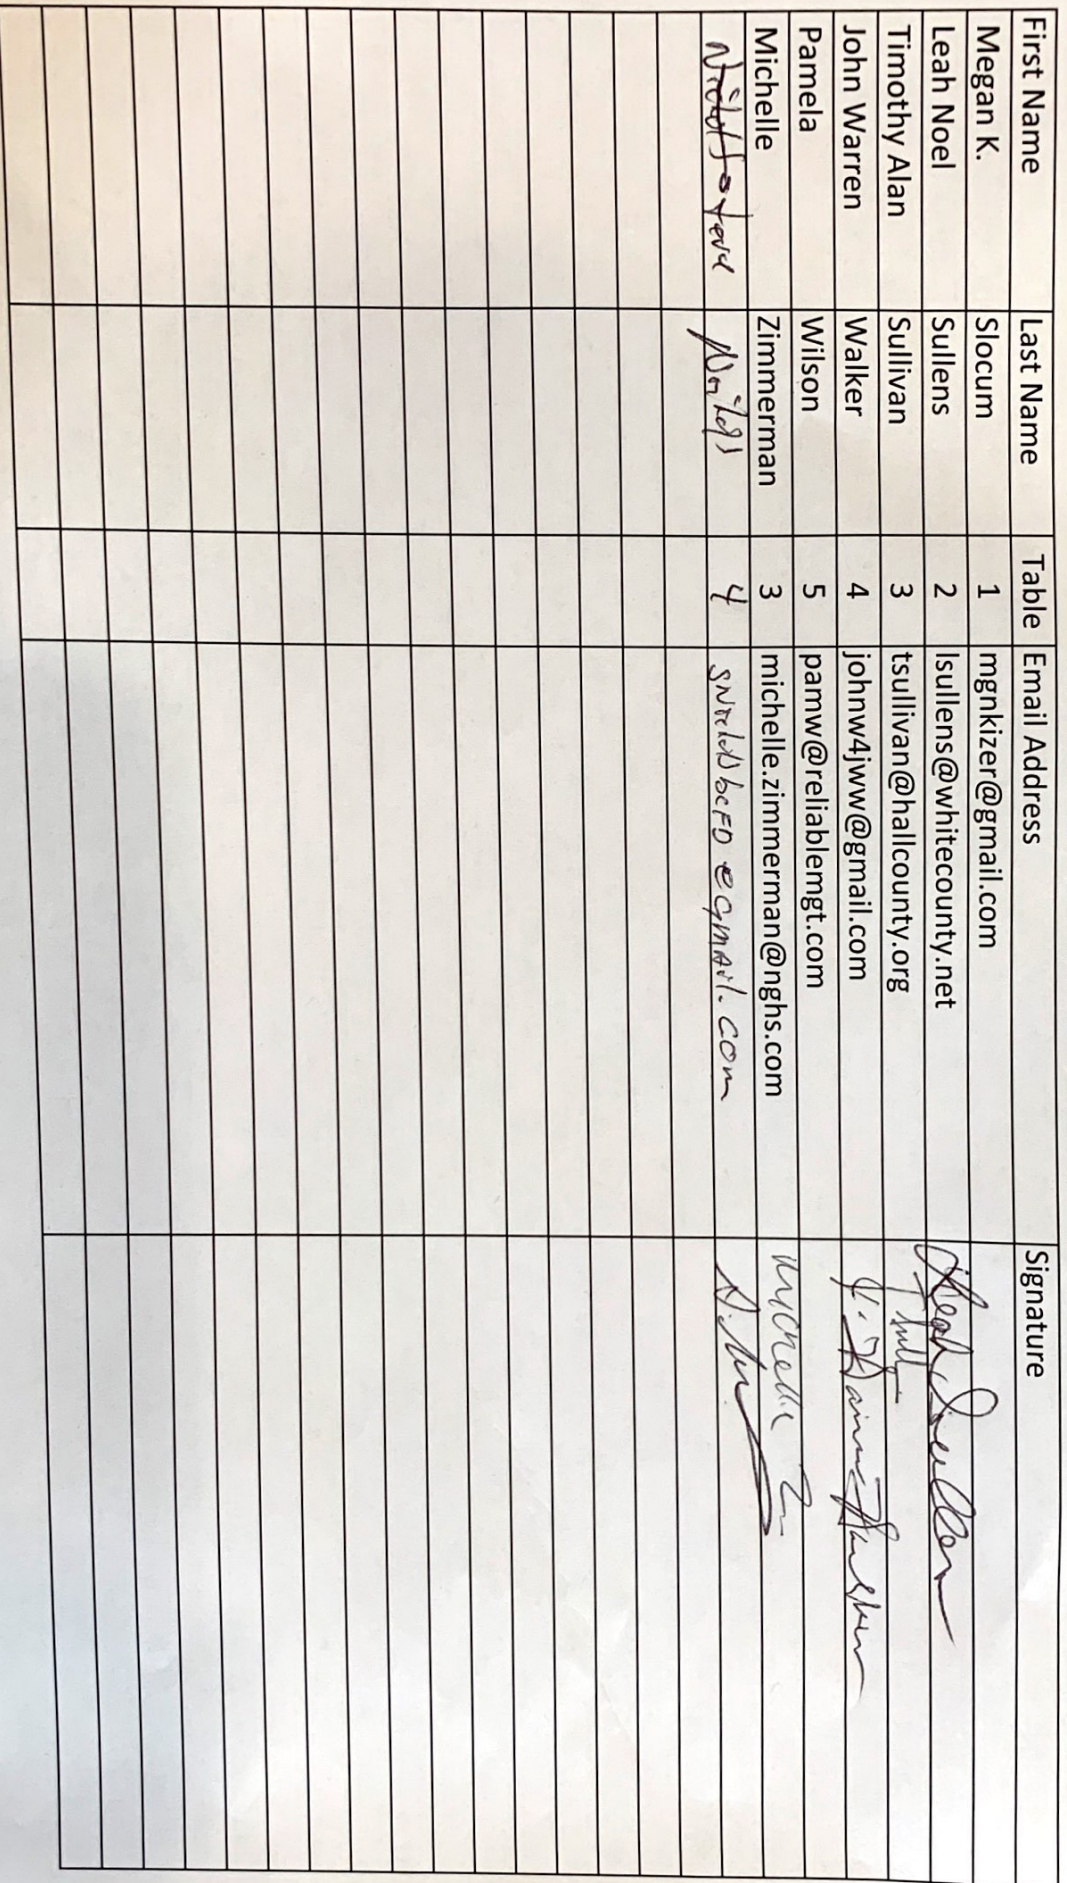 First Name Last Name Table Email Address Signature
Megan K. Slocum 1 mgnkizer@gmail.com
Leah Noel Sullens 2 lsullens@whitecounty.net Leah Sullens
Timothy Alan Sullivan 3 tsullivan@hallcounty.org
John Warren Walker 4 johnw4jww@gmail.com
Pamela Wilson 5 pamw@reliablemgt.com
Michelle Zimmerman 3 michelle.zimmerman@nghs.com Michelle Z
4